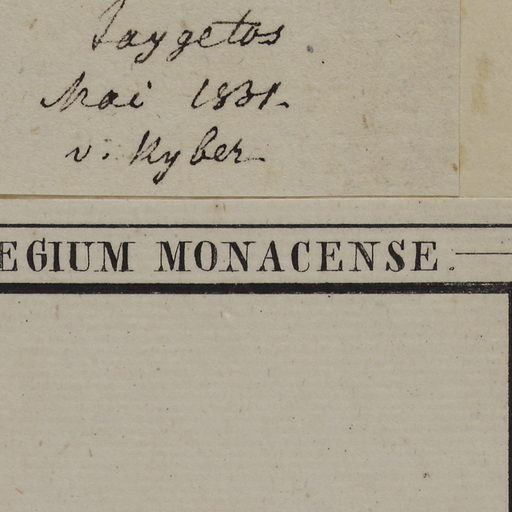 Taygetos
Mai 1831.
v. Kyber
EGIUM MONACENSE